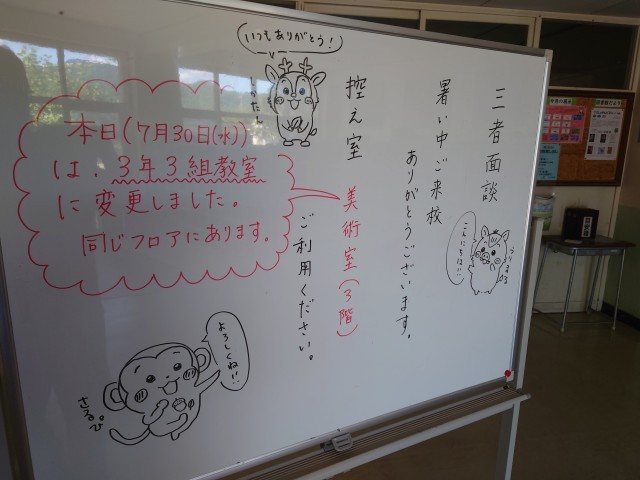 三者面談
暑い中ご来校
ありがとうございます。
控え室 美術室(3階)
ご利用ください。
本日(7月30日(水))
は、3年3組教室
に変更しました。
同じフロアにあります。
いつもありがとう!
しかたん
こんにちは!!
よろしくね!!
さるっぴ